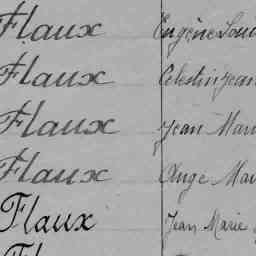 Flaux Eugène Loui
Flaux Celestin Jean
Flaux Jean Mari
Flaux Ange Mar
Flaux Jean Marie